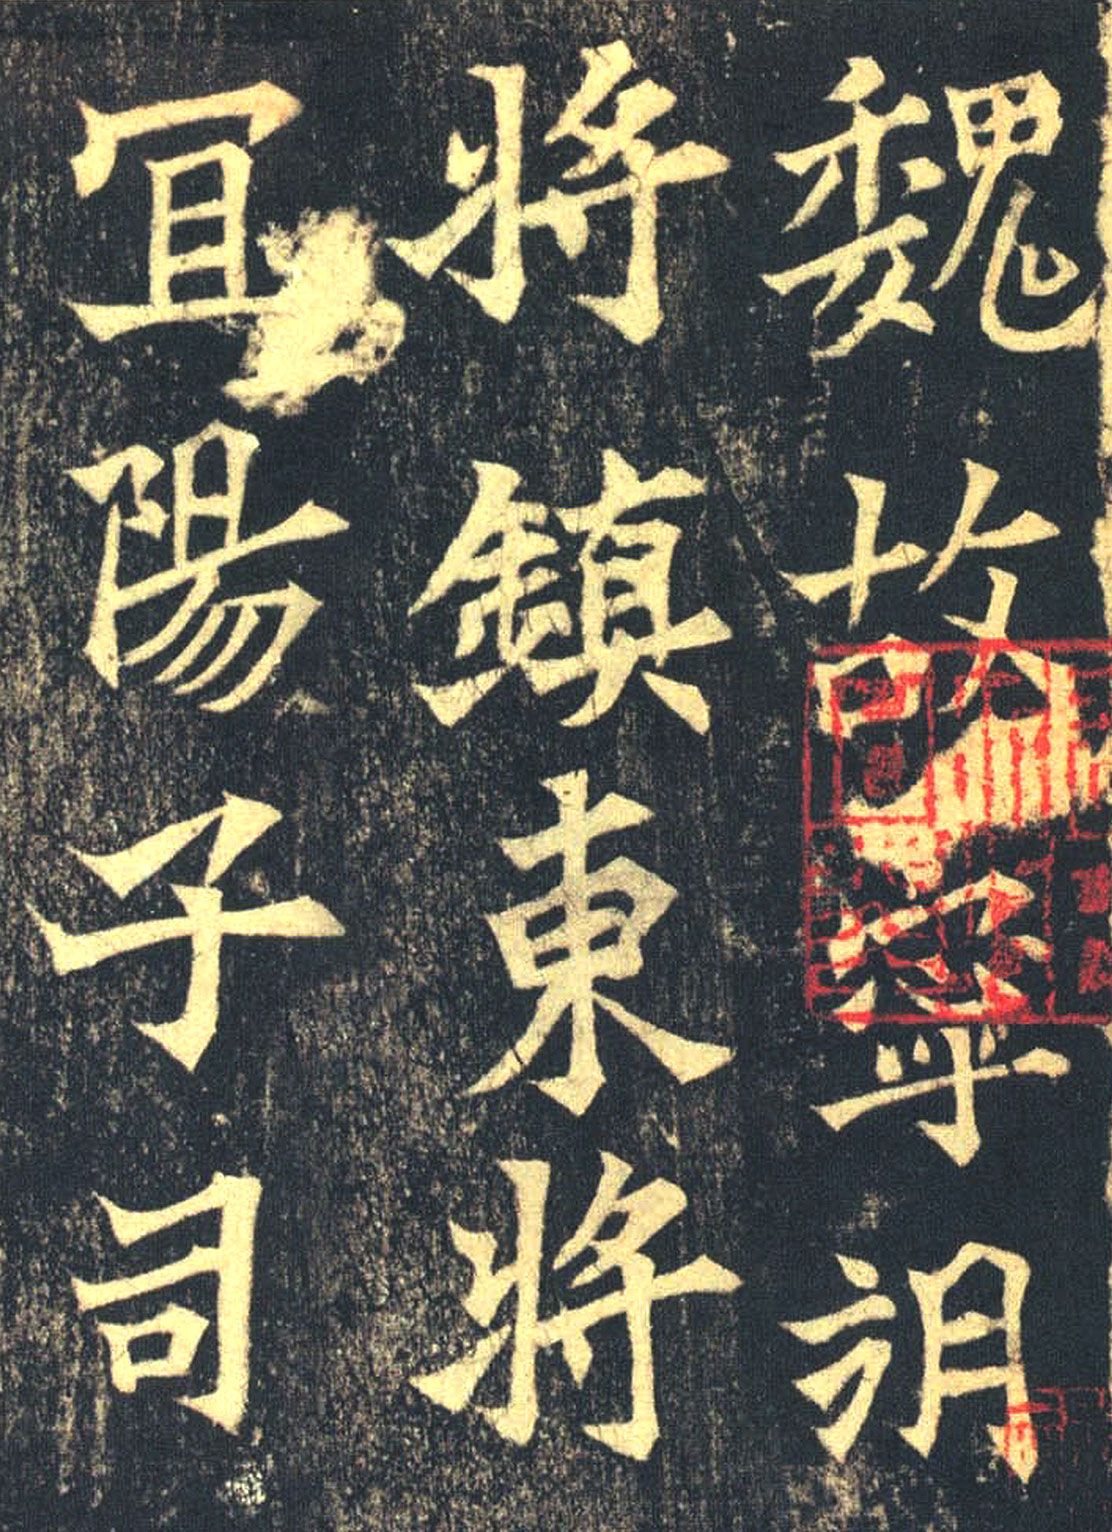 魏故寧朔
將鎮東將
冝陽子司